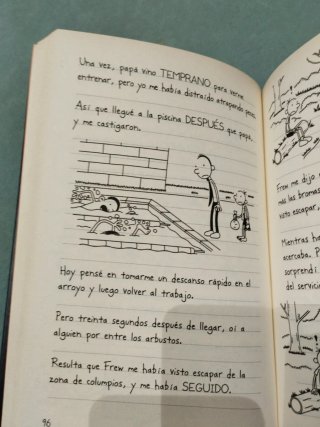 Una vez, papá vino TEMPRANO para verme
entrenar, pero yo me había distraído atrapando peces.
Así que llegué a la piscina DESPUÉS que papá,
y me castigaron.
Hoy pensé en tomarme un descanso rápido en el
arroyo y luego volver al trabajo.
Pero treinta segundos después de llegar, oí a
alguien por entre los arbustos.
Resulta que Frew me había visto escapar de la
zona de columpios, y me había SEGUIDO.
96
Frew me dijo q
más las bromas
visto escapar,
Mientras h
acercaba. P
sorprendí
del servici